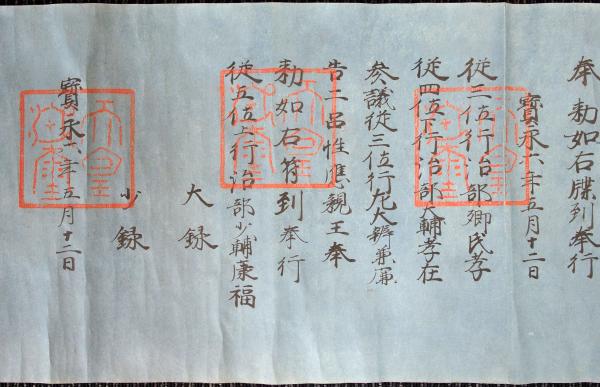 奉 勅如右牒到奉行
寶永六年五月十二日
從三位行治部卿氏孝
從四位下行治部大輔孝在
參議從三位行左大辨兼廉
告二品性應親王奉
勅如右符到奉行
從五位上行治部少輔康福
大録
少録
寶永六年五月十二日
天皇